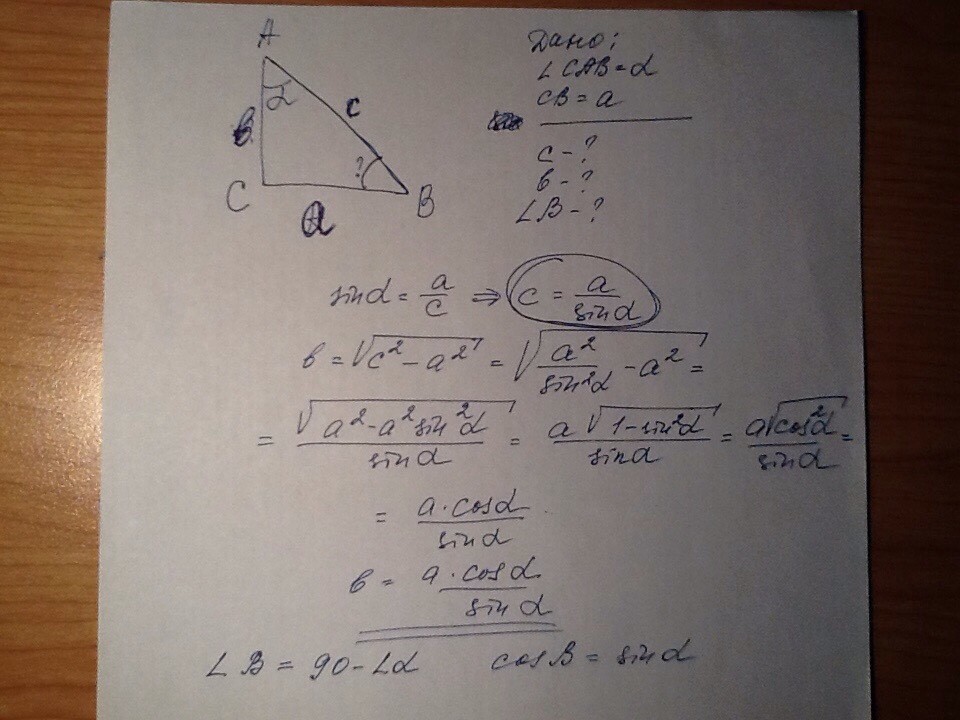 A
α
c
в
?
C
B
a
Дано:
∠CAB=α
CB=a
c-?
в-?
∠B-?
sinα = a/c ⇒ c = a/sinα
в = √(c²-a²) = √(a²/sin²α - a²) =
= √(a²-a²sin²α)/sinα = a√(1-sin²α)/sinα = a√(cos²α)/sinα =
= a·cosα/sinα
в = a·cosα/sinα
∠B = 90-∠α cosB = sinα